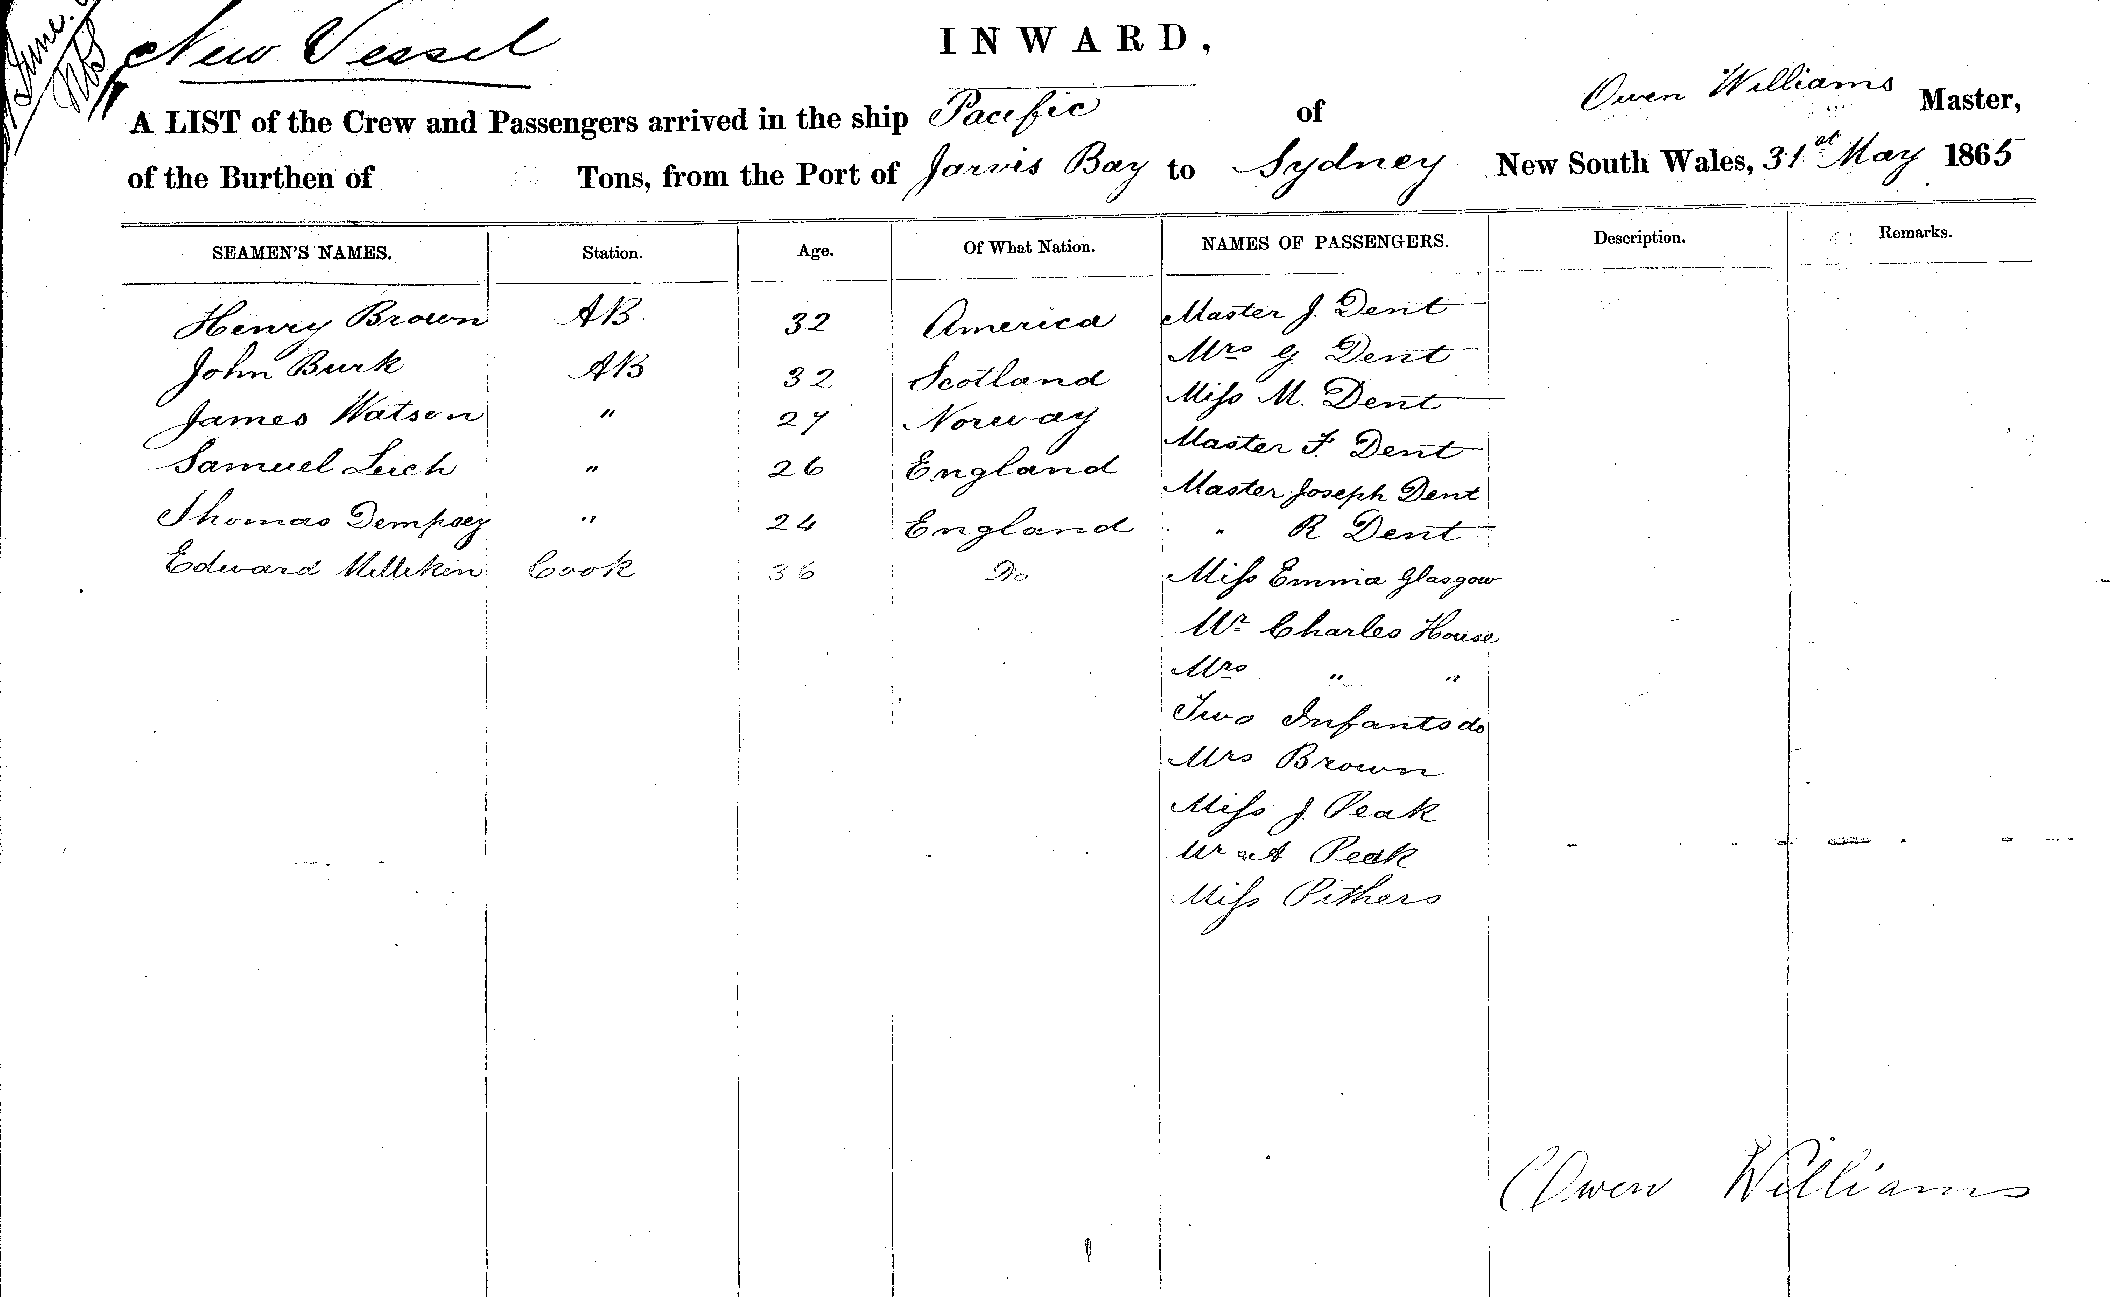 June.
New Vessel
INWARD,
A LIST of the Crew and Passengers arrived in the ship Pacific of Owen Williams Master,
of the Burthen of Tons, from the Port of Jarvis Bay to Sydney New South Wales, 31st May 1865
SEAMEN'S NAMES. Station. Age. Of What Nation. NAMES OF PASSENGERS. Description. Remarks.
Henry Brown AB 32 America Master J. Dent
Mrs G Dent
John Burk AB 32 Scotland Miss M. Dent
James Watson " 27 Norway Master F. Dent
Samuel Leich " 26 England Master Joseph Dent
Thomas Dempsey " 24 England " R Dent
Edward Milliken Cook 36 Do Miss Emma Glasgow
Mr Charles House
Mrs " "
Two Infants do
Mrs Brown
Miss J. Peak
Mr A Peak
Miss Pithers
Owen Williams